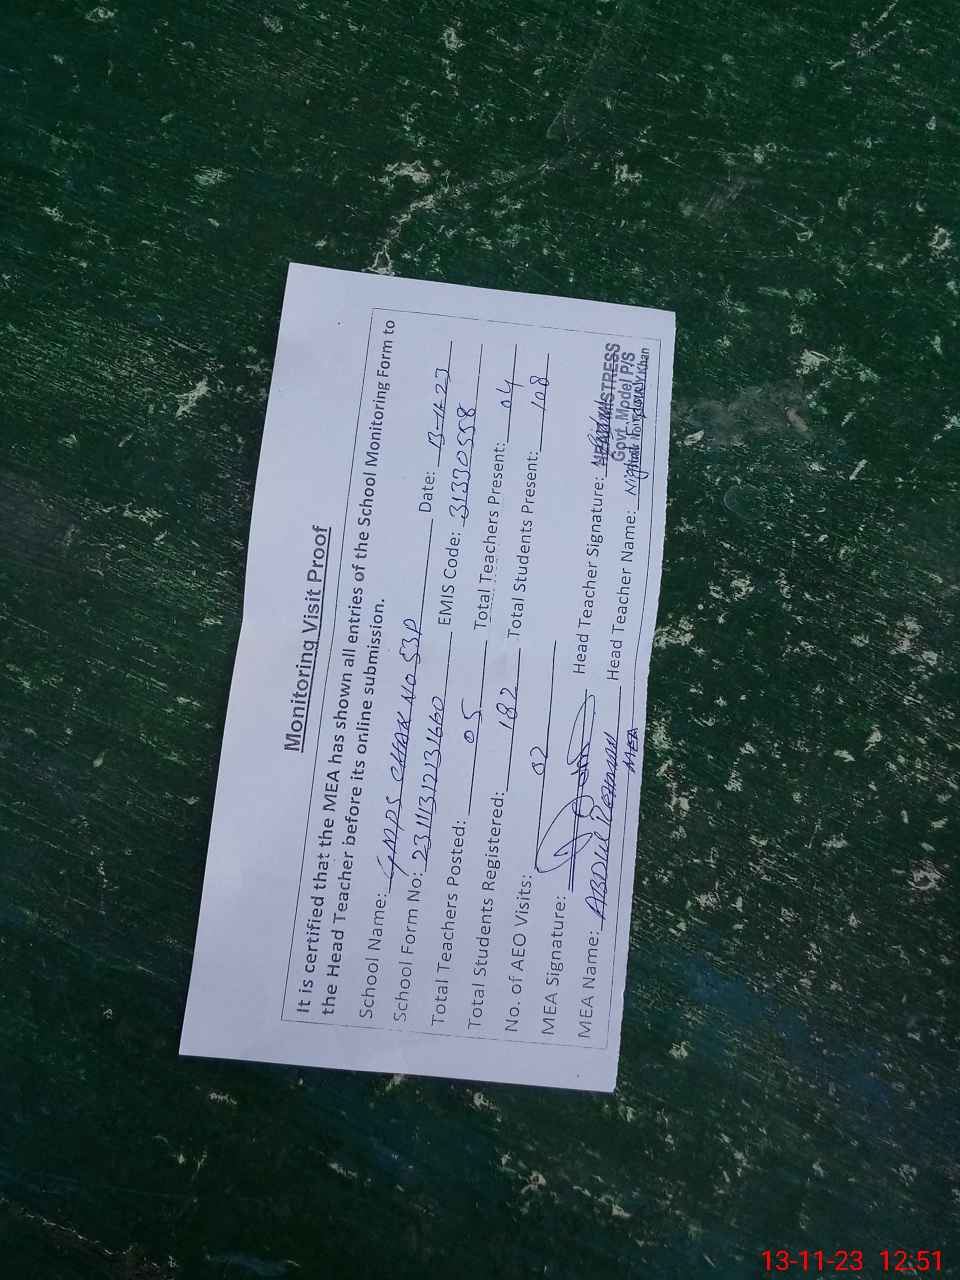 Monitoring Visit Proof
It is certified that the MEA has shown all entries of the School Monitoring Form to
the Head Teacher before its online submission.
School Name: GMPS CHAK NO 53P Date: 13-11-23
School Form No: 231113121131660 EMIS Code: 31330558
Total Teachers Posted: 05 Total Teachers Present: 04
Total Students Registered: 182 Total Students Present: 108
No. of AEO Visits: 02
MEA Signature: Head Teacher Signature:
MEA Name: ABDUL REHMAN Head Teacher Name:
MEA
MISTRESS
Govt. Model P/S
Khan
13-11-23 12:51